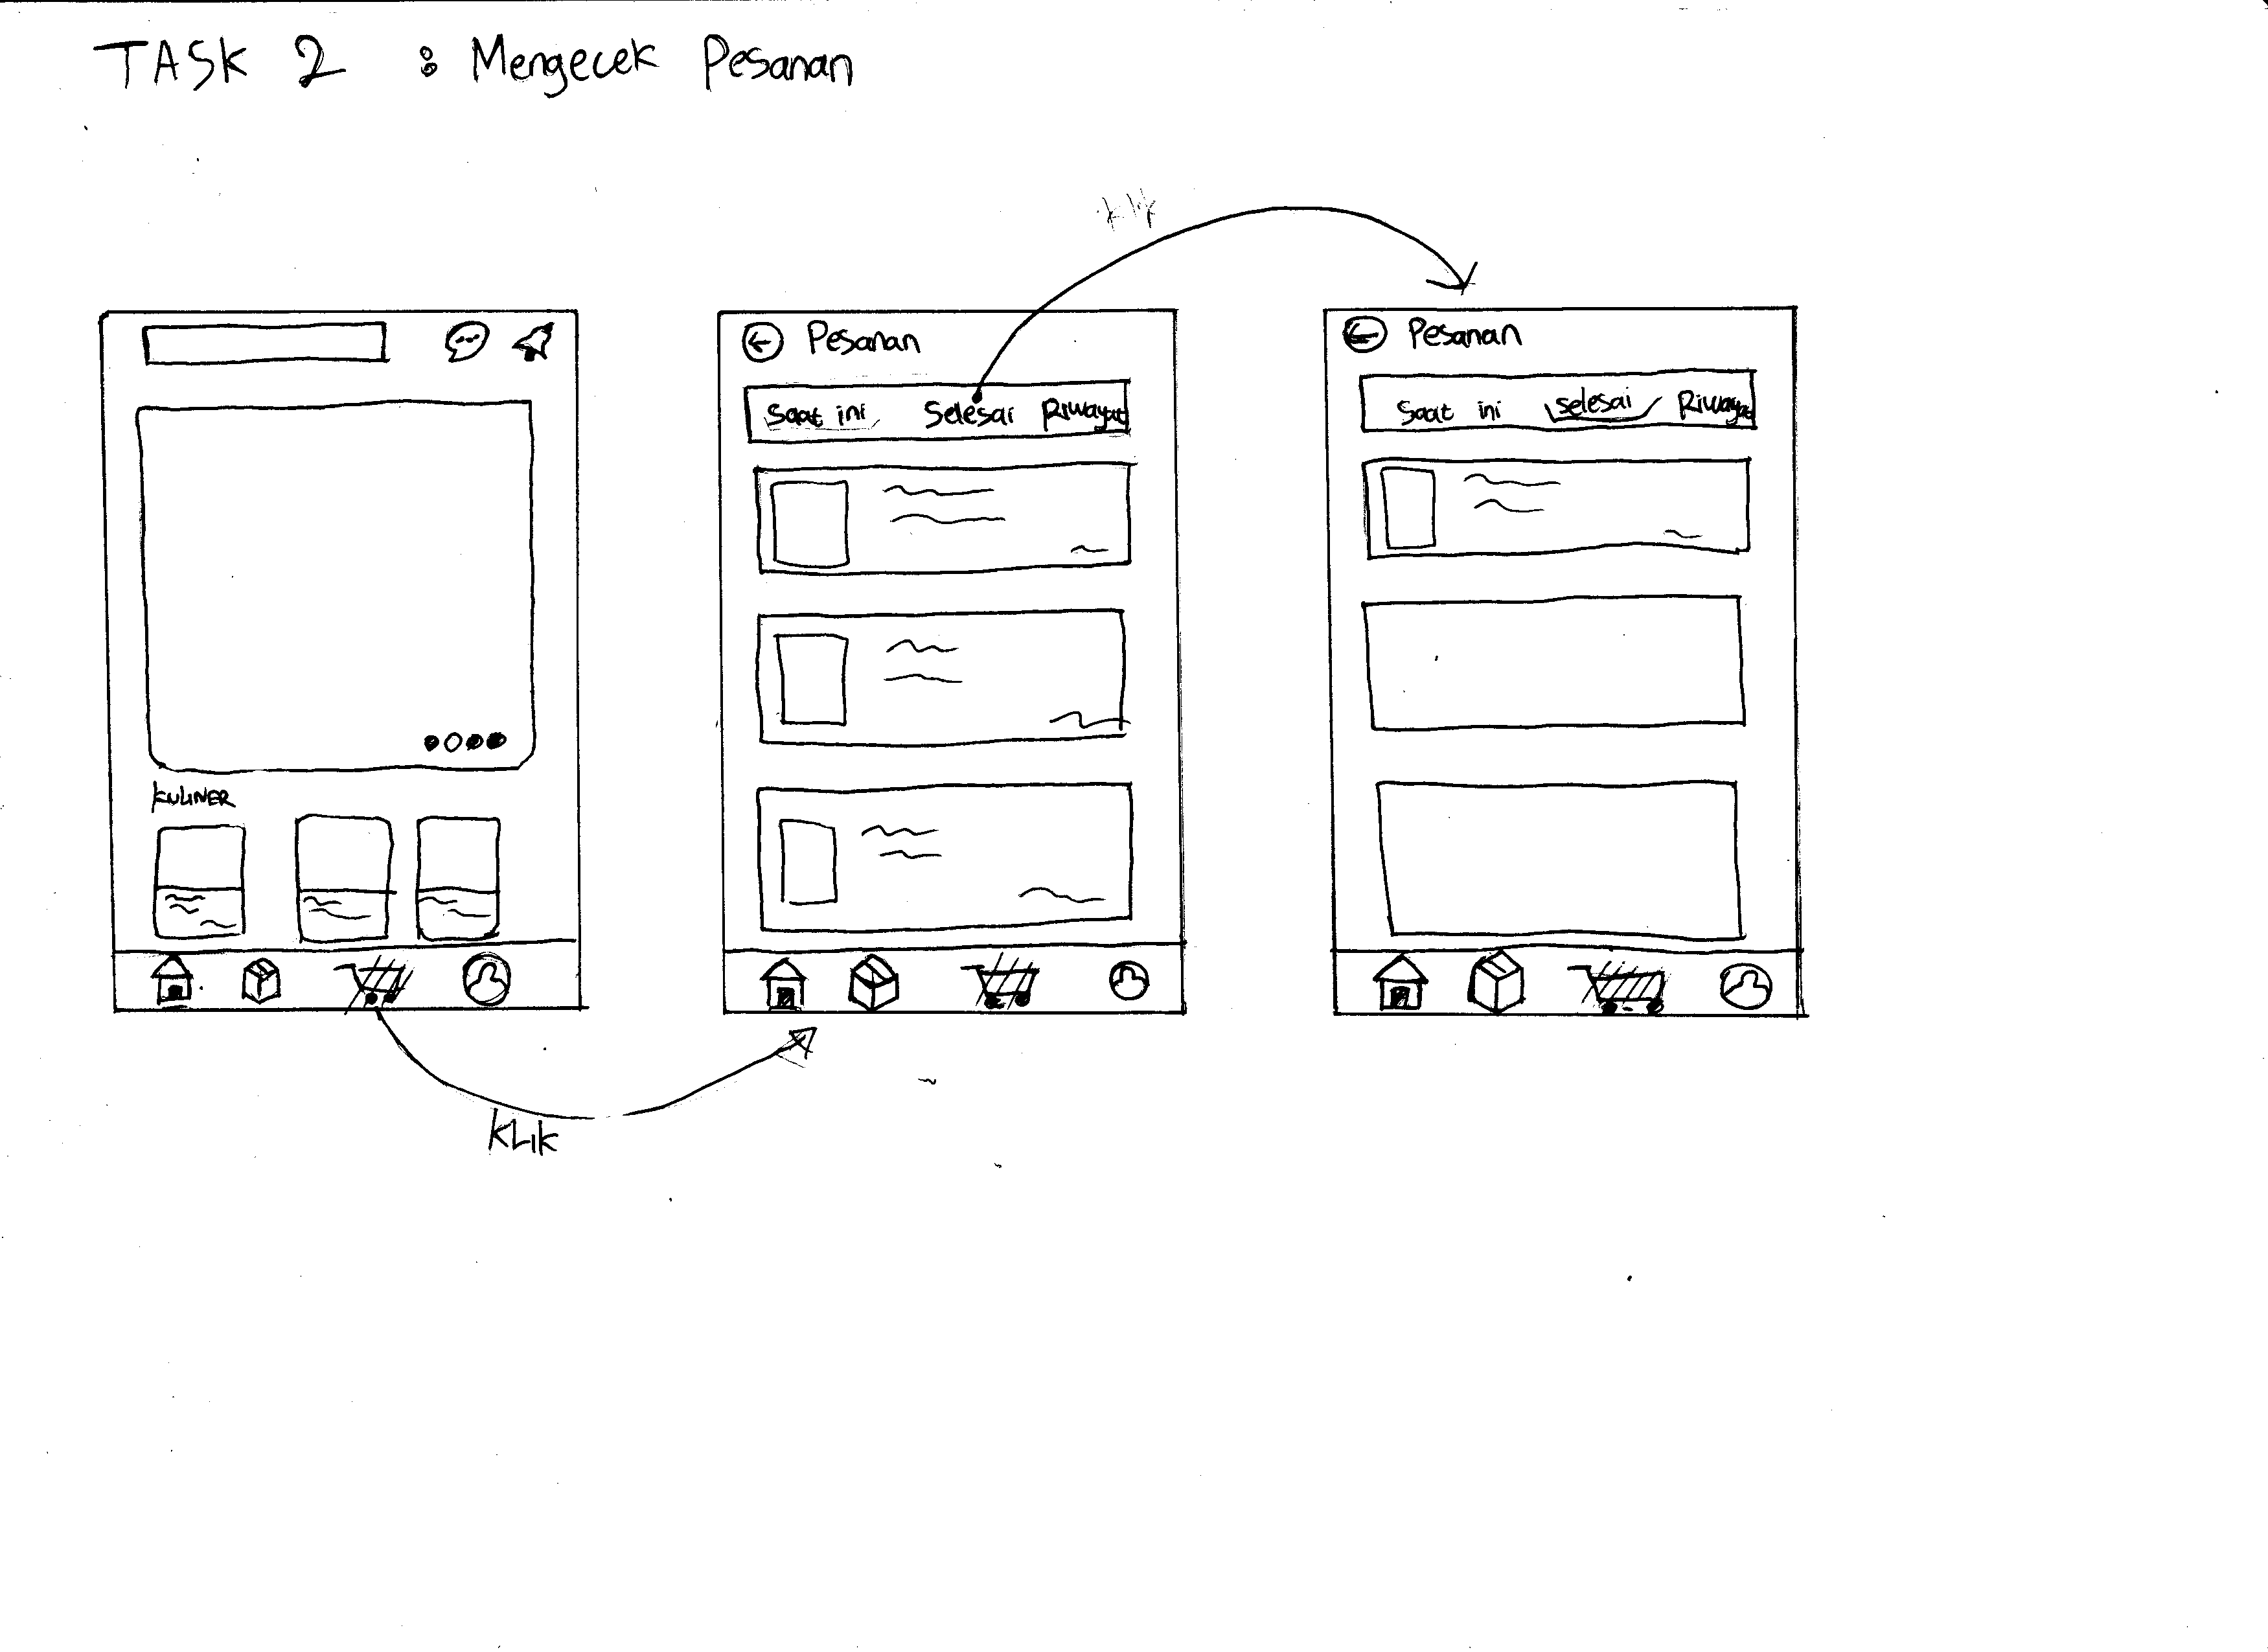 TASK 2 : Mengecek Pesanan
Pesanan
Saat ini Selesai Riwayat
Pesanan
Saat ini selesai Riwayat
KULINER
KLIK